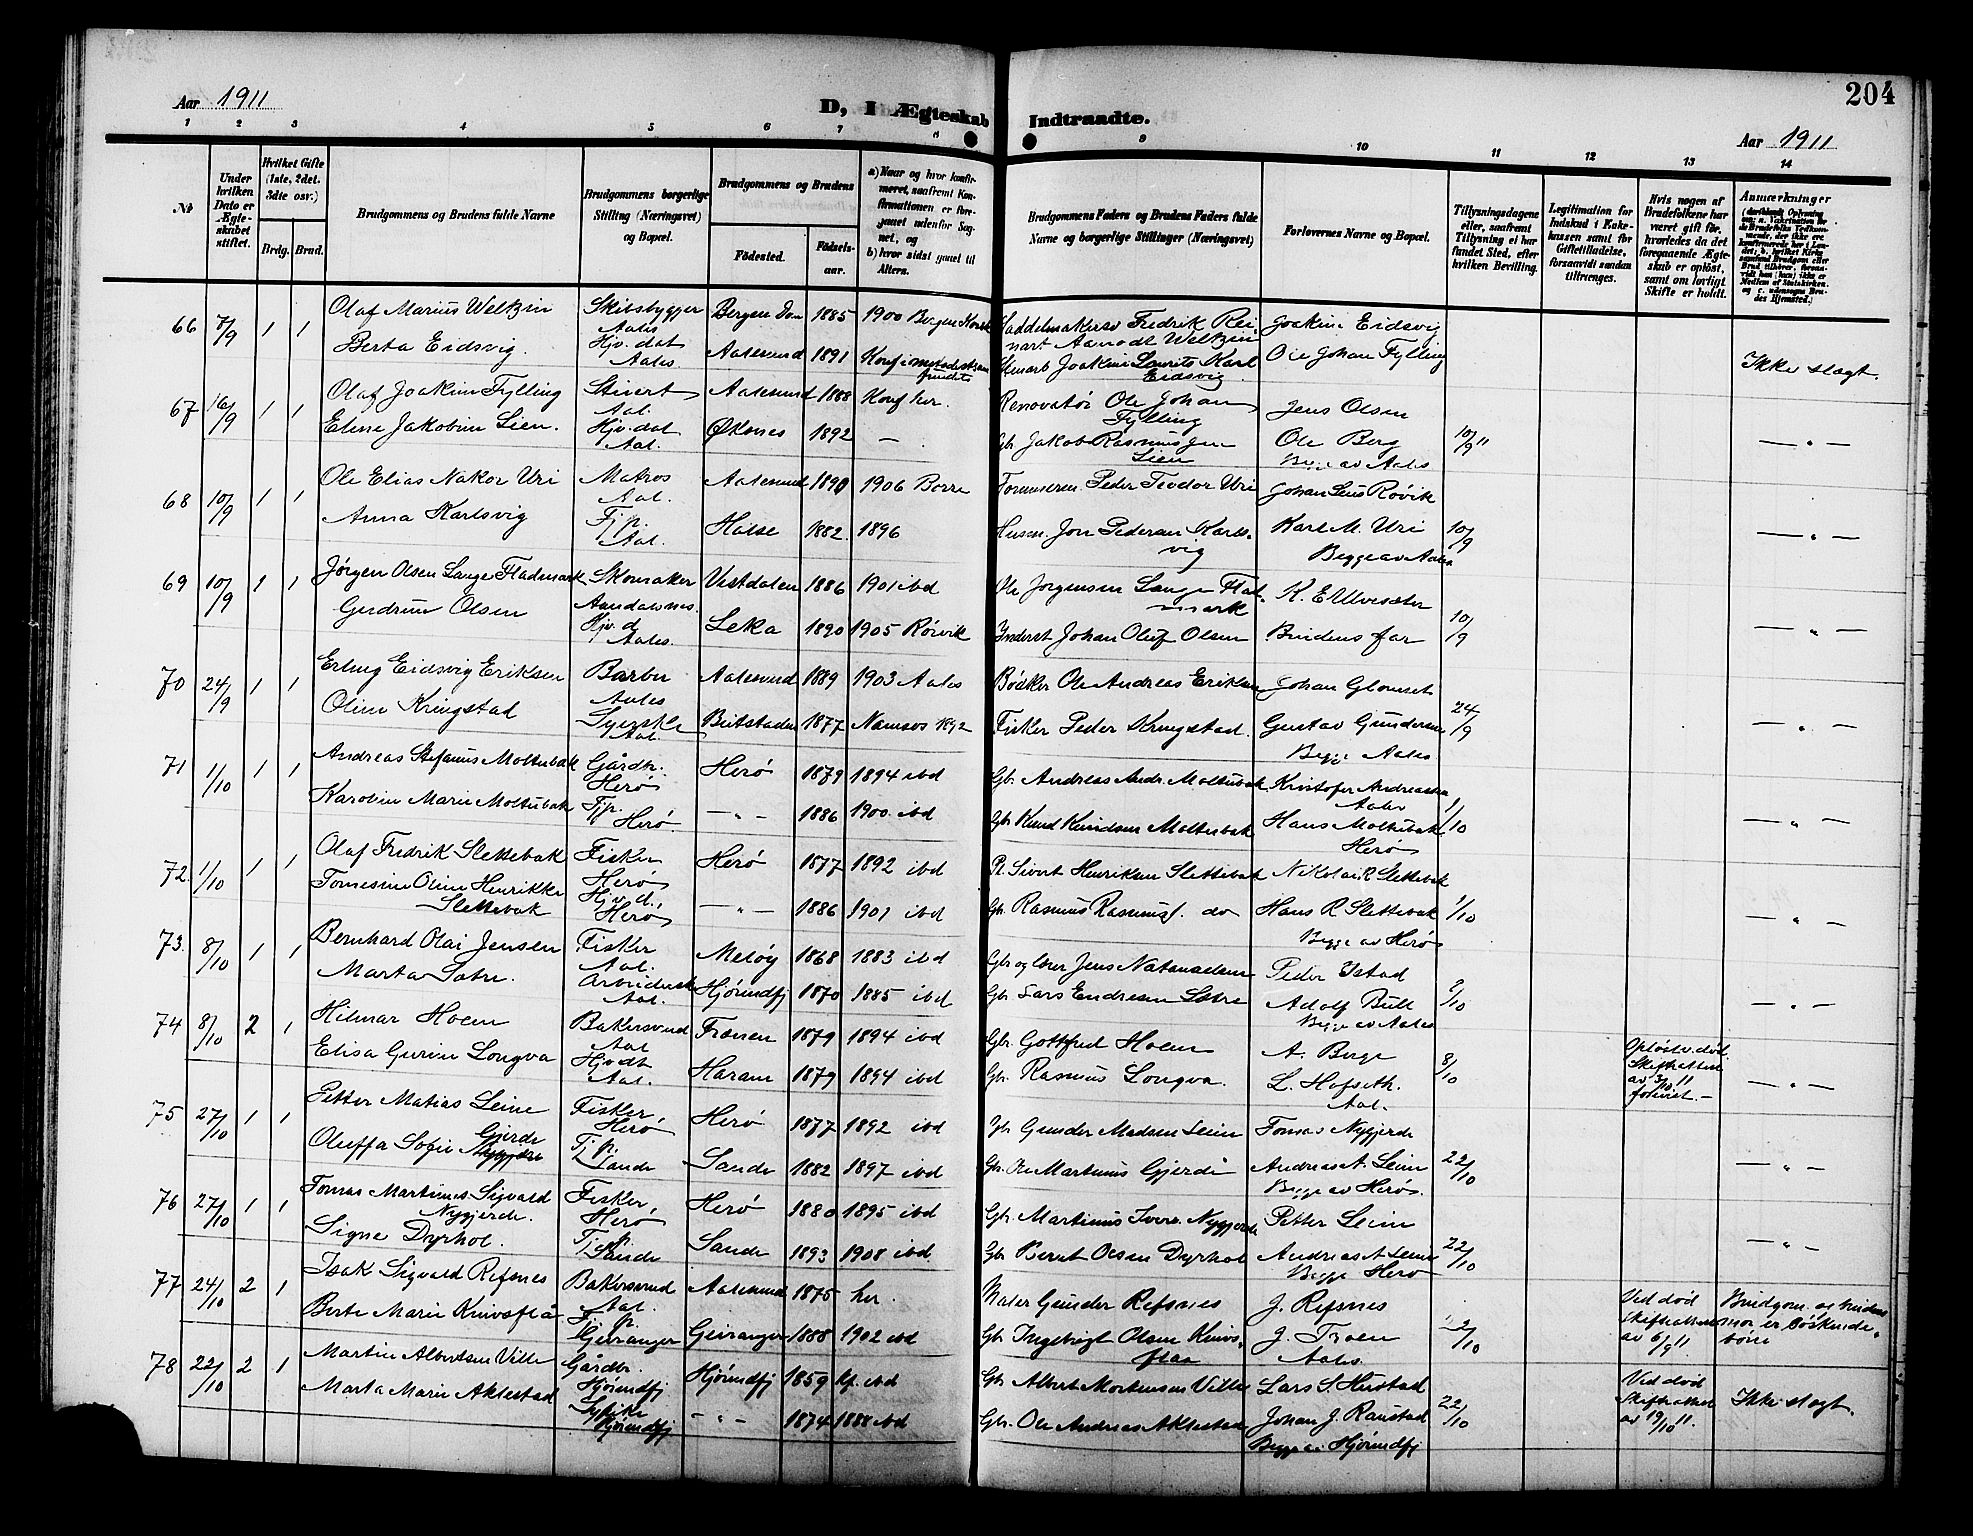 204
Aar 1911
D, I Ægteskab Indtraadte.
Aar 1911
1 2 3 4 5 6 7 8 9 10 11 12 13 14
Nr
Under hvilken Dato er Ægteskabet stiftet.
Hvilket Gifte (1ste, 2det, 3dte osv.)
Brdg. Brud.
Brudgommens og Brudens fulde Navne
Brudgommens borgerlige Stilling (Næringsvei) og Bopæl.
Brudgommens og Brudens
Fødested. Fødselsaar.
a) Naar og hvor konfirmeret, saafremt Konfirmationen er foregaaet udenfor Sognet, og
b) hvor sidst gaaet til Alters.
Brudgommens Faders og Brudens Faders fulde Navne og borgerlige Stillinger (Næringsvei)
Forlovernes Navne og Bopæl.
Tillysningsdagene eller, saafremt Tillysning ei har fundet Sted, efter hvilken Bevilling.
Legitimation for Indskud i Enkekassen samt for Giftetilladelse, forsaavidt saadan tiltrænges.
Hvis nogen af Brudefolkene har været gift før, hvorledes da det foregaaende Ægteskab er opløst, samt om lovligt Skifte er holdt.
Anmærkninger
66 7/9 1 1 Olaf Marius Weltzin Skibsbygger Aales Bergen Dom 1885 1900 Bergen Fredrik Reinart Weltzin Joakim Eidsvig
Berta Eidsvig. Hjv. dat Aales Aalesund 1891 Joakim Laurits Karl Eidsvig Ole Johan Fylling Ikke slægt.
67 16/9 1 1 Olaf Joakim Fylling Aal. Aalesund 1888 Konf her. Renovatør Ole Johan Fylling Jens Olsen
Eline Jakobine Lien. Hjv. dat Aal. Øksnes 1892 — Gbr. Jakob Rasmus Jens Lien Ole Berg Begge av Aales 10/9 11 — " —
68 10/9 1 1 Ole Elias Nakor Uri Matros Aal. Aalesund 1890 1906 Borre Peder Teodor Uri Johan Røvik
Anna Karlsvig Tjp. Aal. Halse 1882. 1896 Husm. Jon Pedersen Karlsvig Karl M. Uri Begge av Aales 10/9 — " —
69 10/9 1 1 Jørgen Olsen Lange Fladmark Skomaker Aandalsnes. Vestdalen 1886 1901 ibd Ole Jørgensen Lange Fladmark K. E Ulveseter
Gudrun Olsen Hjv. d Aales. Leka 1890 1905 Rørvik Johan Oluf Olsen Brudens far 10/9 — " —
70 24/9 1 1 Erling Eidsvig Eriksen Barber Aales Aalesund 1889 1903 Aales Bødker Ole Andreas Eriksen Johan Glomset
Oline Kringstad Syerske Aal. Beitstaden 1877 Namsos 1892 Fisker Peder Kringstad. Gustav Gundersen Begge Aales 24/9 — " —
71 1/10 1 1 Andreas Stefanus Moltubak Gårdbr. Herø Herø 1879 1894 ibd Gbr. Andreas Andr. Moltubak Kristofer Andreassen Aales
Karoline Marie Moltubak Tjp. Herø. — " — 1886 1900 ibd Gbr Knud Knudsen Moltubak Hans Moltubak Herø 1/10 — " —
72. 1/10 1 1 Olaf Fredrik Slettebak Fisker Herø Herø 1877 1892 ibd Sivert Henriksen Slettebak Nikolai R Slettebak
Tomesine Oline Henrikke Slettebak Hjv. d. Herø — " — 1886 1901 ibd Gbr. Rasmus Rasmus. do Hans R Slettebak Begge av Herø 1/10 — " —
73. 8/10 1 1 Bernhard Olai Jensen Fisker Aal. Meløy 1868 1883 ibd Gbr og lærer Jens Natanaelsen Peder Ystad
Marta Sætre. Aal. Hjørundfj 1870 1885 ibd Gbr. Lars Endresen Sætre Adolf Bull Begge av Aales /10 — " —
74 8/10 2 1 Hilmar Hoem Bakersvend Aal Frænen 1879 1894 ibd Gbr. Gottfred Hoem A. Berge
Elisa Gurine Longva Hjvdt Aal. Haram 1879 1894 ibd Gbr. Rasmus Longva. L. Hofseth. Aal. 8/10 Opløst v. død. Skifteattest av 3/10 11 forevist. — — " —
75 27/10 1 1 Petter Matias Leine Fisker, Herø Herø 1877 1892 ibd Gbr Gunder Madsen Leine Tomas Nygjerde
Oluffa Sofie Gjerde Tjp. Sande Sande 1882 1897 ibd Gbr. Ole Martinus Gjerde Andreas A. Leine Begge av Herø. 22/10 — " —
76 27/10 1 1 Tomas Martinus Sigvald Nygjerde. Fisker, Herø Herø 1880 1895 ibd Gbr. Martinus Ivers. Nygjerde Petter Leine
Signe Dyrhol. Tjp. Sande Sande 1893 1908 ibd. Gbr Bernt Olsen Dyrhol Andreas A Leine Begge Herø 22/10 — " —
77 24/10 2 1 Isak Sigvald Refsnes Bakersvend Aal. Aalesund 1875 her. Maler Gunder Refsnes J. Refsnes
Berte Marie Knivsflå Tjp. Geiranger Geiranger 1888 1902 ibd Gbr. Ingebrigt Olsen Knivsflaa J. Troen Aales. /10 Ved død Skifteattest av 6/9 11. Brudgom. og brudens mor er søskendebørn
78 22/10 2 1 Martin Albertsen Ville Gårdbr. Hjørundfj Hjørundfj 1859 kf. ibd Gbr Albert Mortensen Ville Lars S. Hustad
Marta Marie Aklestad Hjørundfj — " — 1874 1888 ibd Gbr. Ole Andreas Aklestad Johan J. Raustad Begge av Hjørundfj 22/10 Ved død Skifteattest av 19/10 11. Ikke slægt.